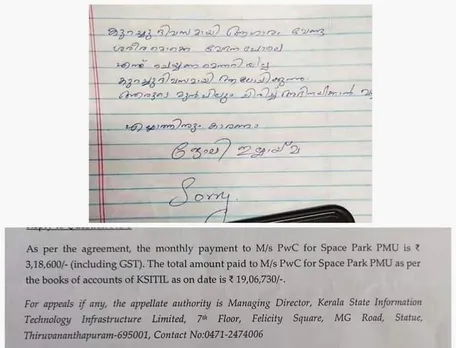 കുറച്ചു ദിവസമായി ആഹാരം വേണ്ട
ശരീരമൊക്കെ വേദന പോലെ
എന്ത് ചെയ്യണമെന്നറിയില്ല
കുറച്ചു ദിവസമായി ആലോചിക്കുന്നു
മുൻപിലും ചിരിച്ച് അഭിനയിക്കാൻ
എല്ലാത്തിനും കാരണം
ജോലി ഇല്ലായ്മ
Sorry
As per the agreement, the monthly payment to M/s PwC for Space Park PMU is ₹
3,18,600/- (including GST). The total amount paid to M/s PwC for Space Park PMU as per
the books of accounts of KSITIL as on date is ₹ 19,06,730/-.
For appeals if any, the appellate authority is Managing Director, Kerala State Information
Technology Infrastructure Limited, 7th Floor, Felicity Square, MG Road, Statue,
Thiruvananthapuram-695001, Contact No:0471-2474006